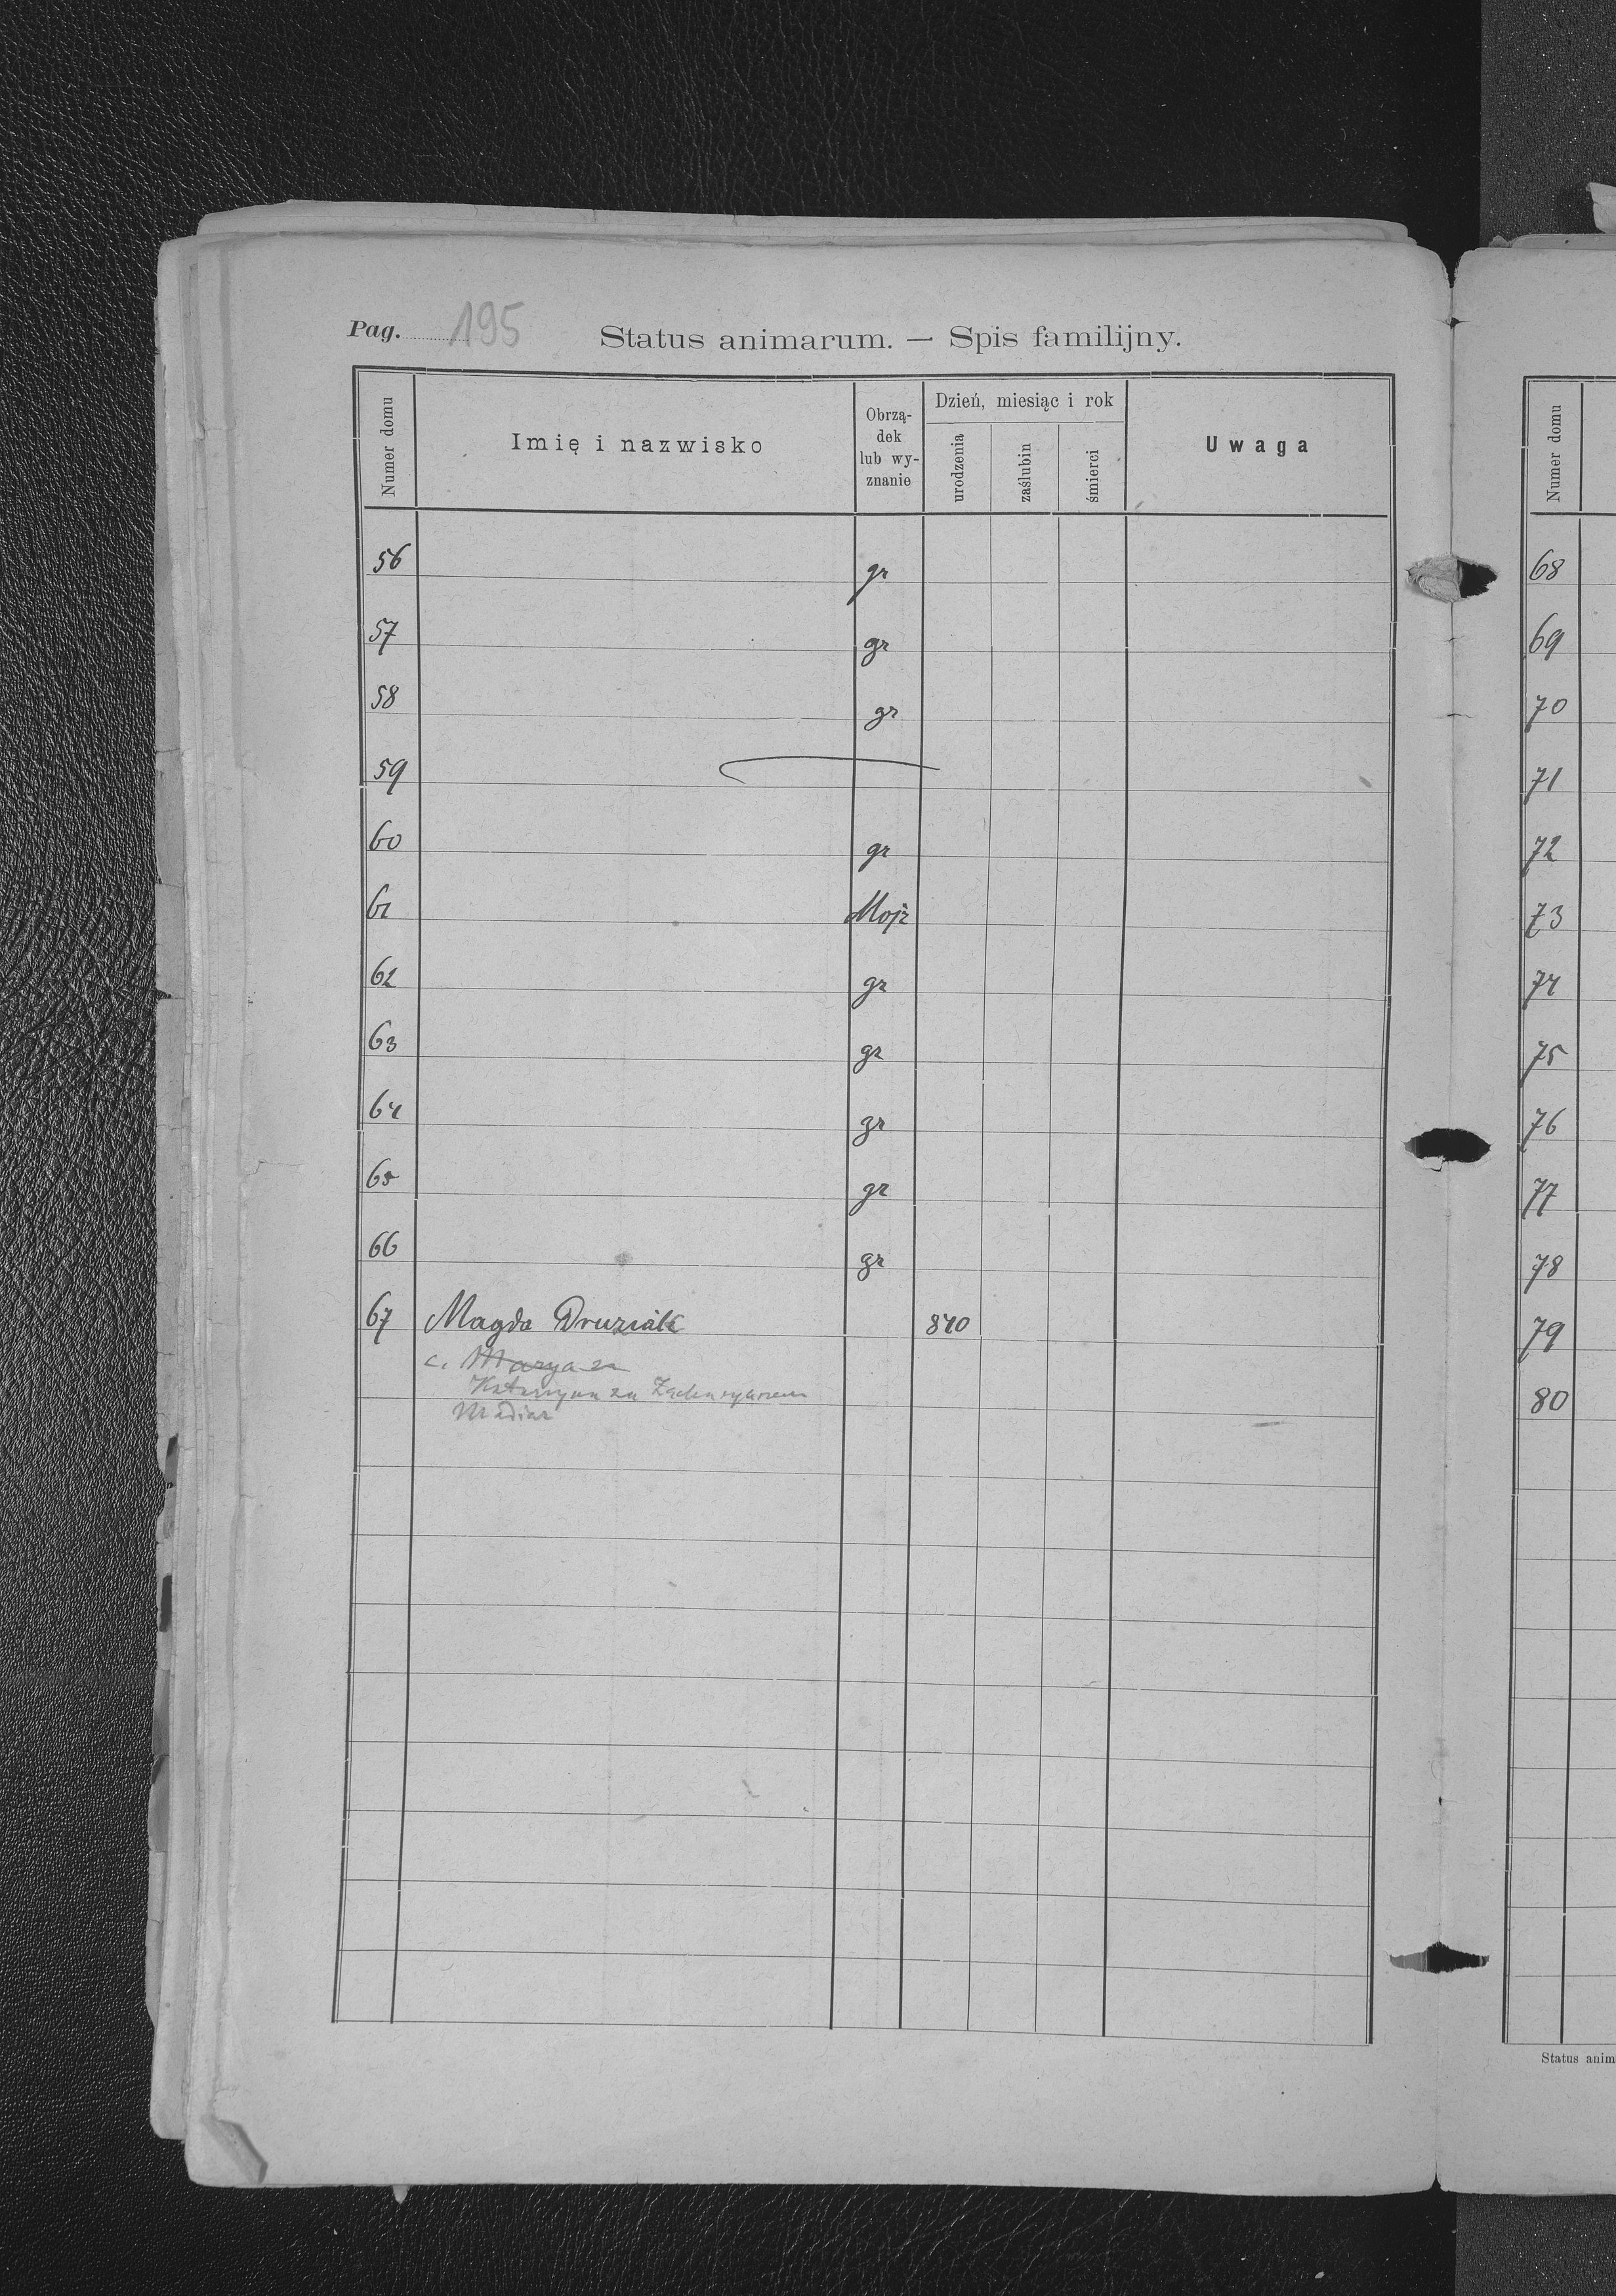 Pag. 195
Status animarum. — Spis familijny.
Numer domu
Imię i nazwisko
Obrzą-
dek
lub wy-
znanie
Dzień, miesiąc i rok
urodzenia
zaślubin
śmierci
Uwaga
56 gr
57 gr
58 gr
59
60 gr
61 Mojż
62 gr
63 gr
64 gr
65 gr
66 gr
67 Magda Druziak 840
c. Marya za
Katarzyna za
Numer domu
68
69
70
71
72
73
74
75
76
77
78
79
80
Status anim